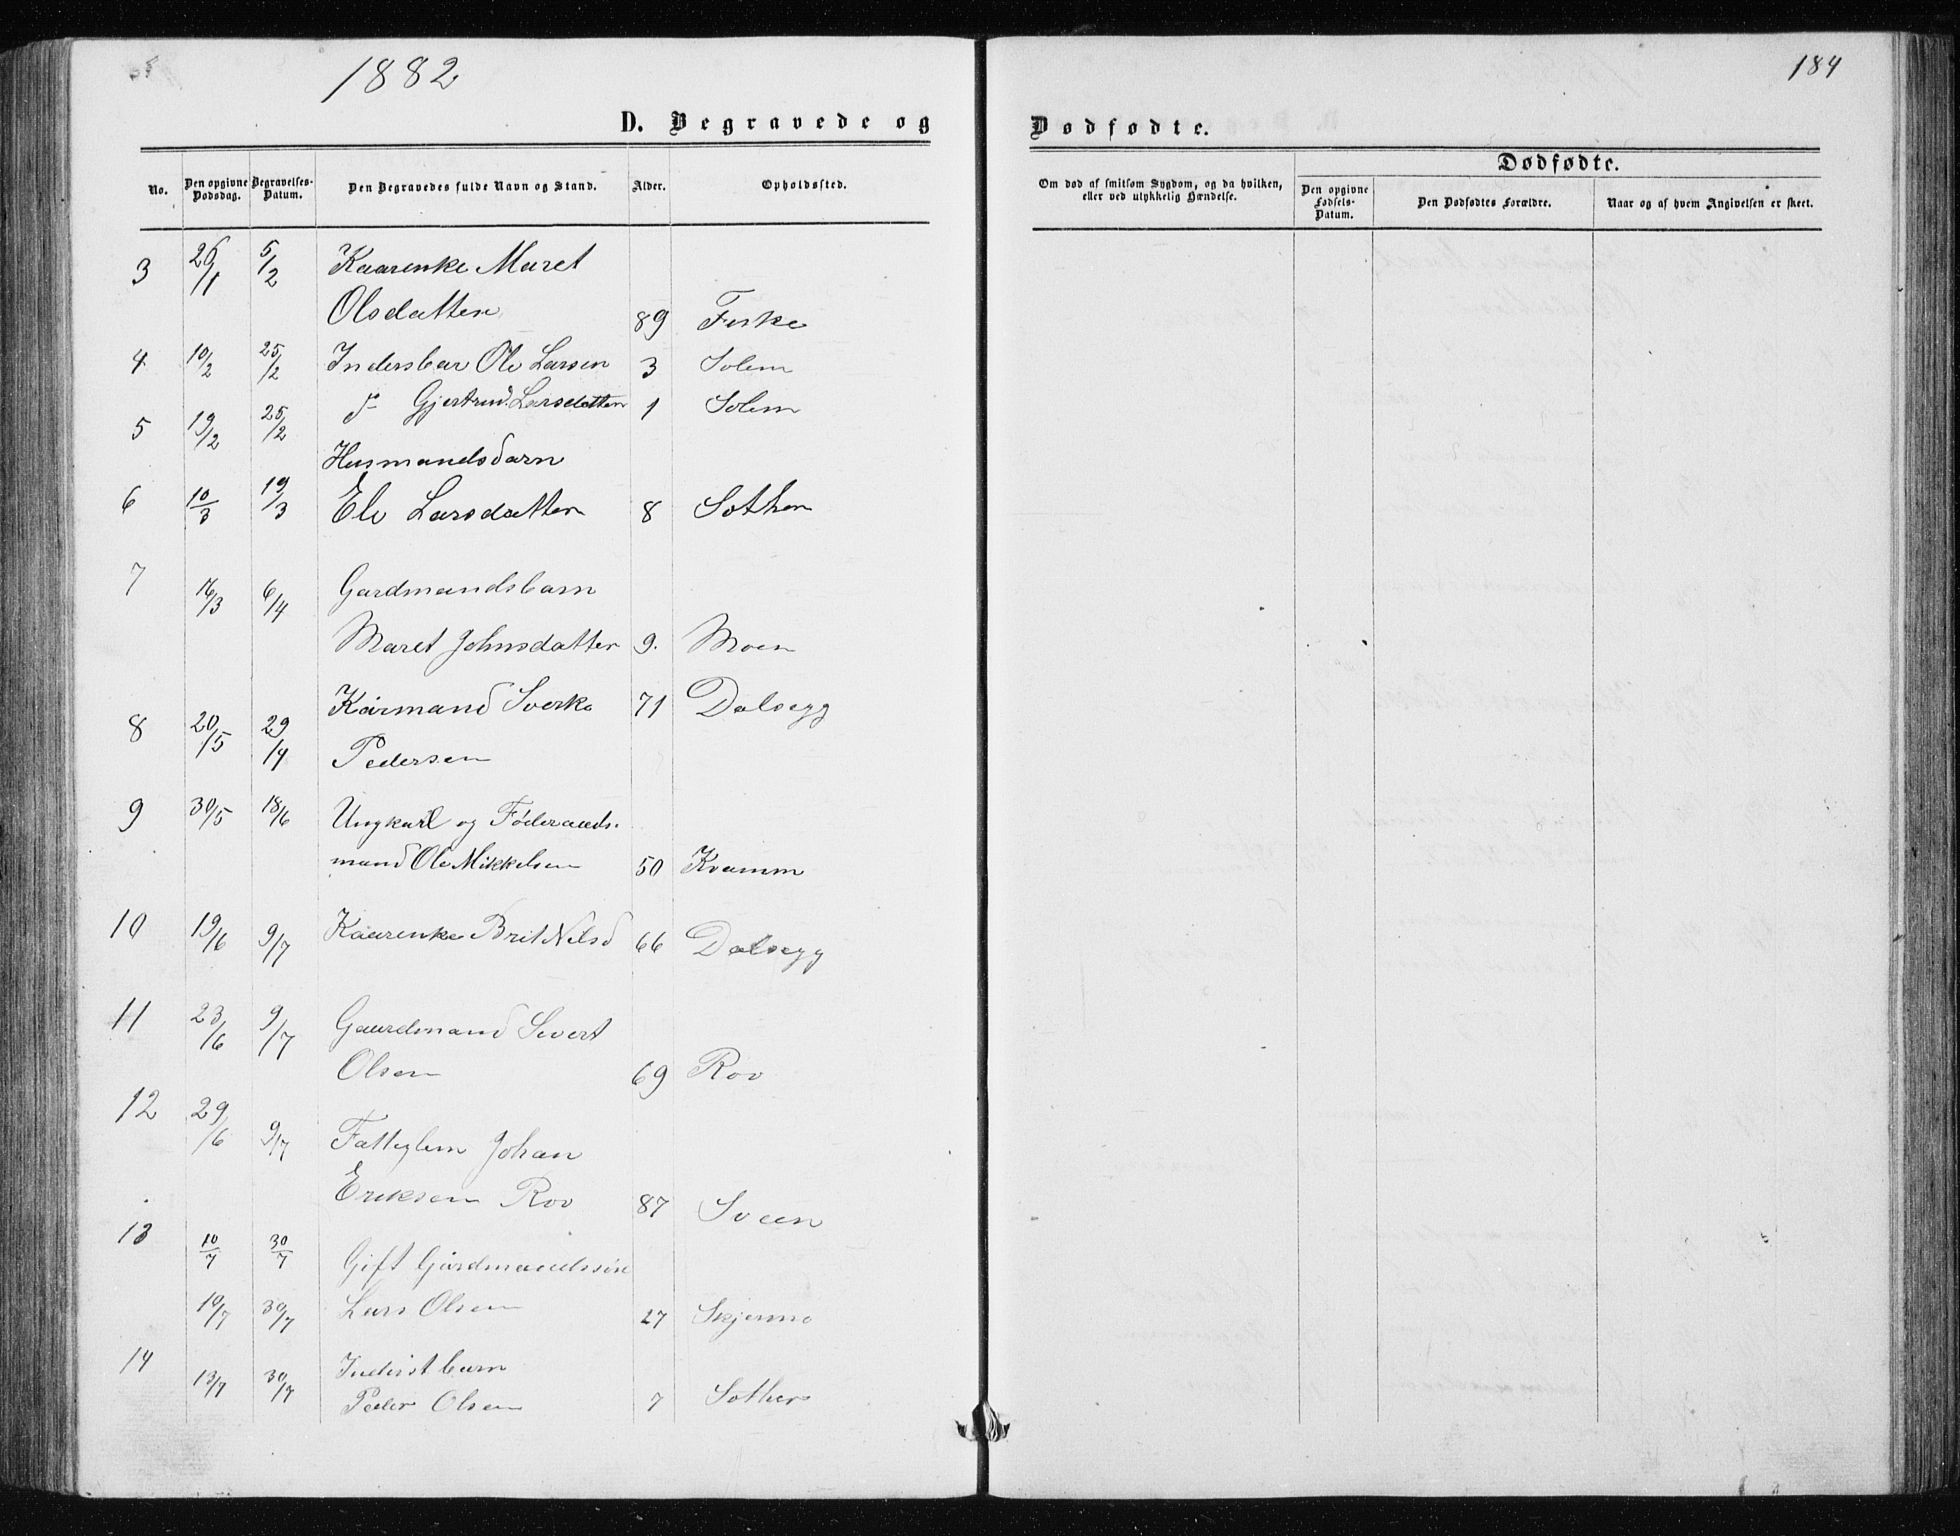 1882
184
D. Begravede og
Dødfødte.
No.
Den opgivne Dødsdag.
Begravelses-Datum.
Den Begravedes fulde Navn og Stand.
Alder.
Opholdssted.
Om død af smitsom Sygdom, og da hvilken, eller ved ulykkelig Hændelse.
Dødfødte.
Den opgivne Fødsels-Datum.
Den Dødfødtes Forældre.
Naar og af hvem Angivelsen er skeet.
3 26/1 5/2 Kaarenke Maret
Olsdatter 89 Feske
4 10/2 25/2 Indersbar Ole Larsen 3 Solem
5 19/2 25/2 Gjertrud Larsdatter 1 Solem
Husmandsbarn
6 10/3 19/3 Eli Larsdatter 8 Sother
7 16/3 6/4 Gardmandsbarn
Maret Johnsdatter 9. Moen
8 20/5 29/4 Kårmand Sverke 71 Dalsegg
Pedersen
9 30/5 18/6 Ungkarl og Føderaads-
mand Ole Mikkelsen 50 Kvamm
10 19/6 9/7 Kaarenke Brit Nilsd 66 Dalsegg
11 23/6 9/7 Gaardmand Sivert
Olsen 69 Rov
12 29/6 9/7 Fattiglem Johan
Eriksen Rov 87 Sveen
13 10/7 30/7 Gift Gårdmandssøn
10/7 30/7 Lars Olsen 27 Skjermo
14 13/7 30/7 Inderstbarn
Peder Olsen 7 Sother